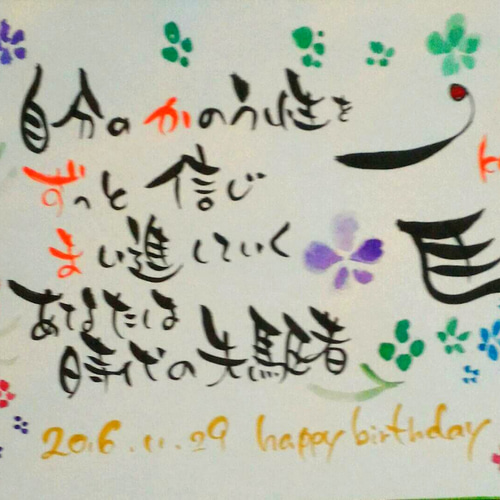 自分のかのう性を
ずっと信じ
まい進していく
あなたは
時代の先駆者
2016.11.29 happy birthday